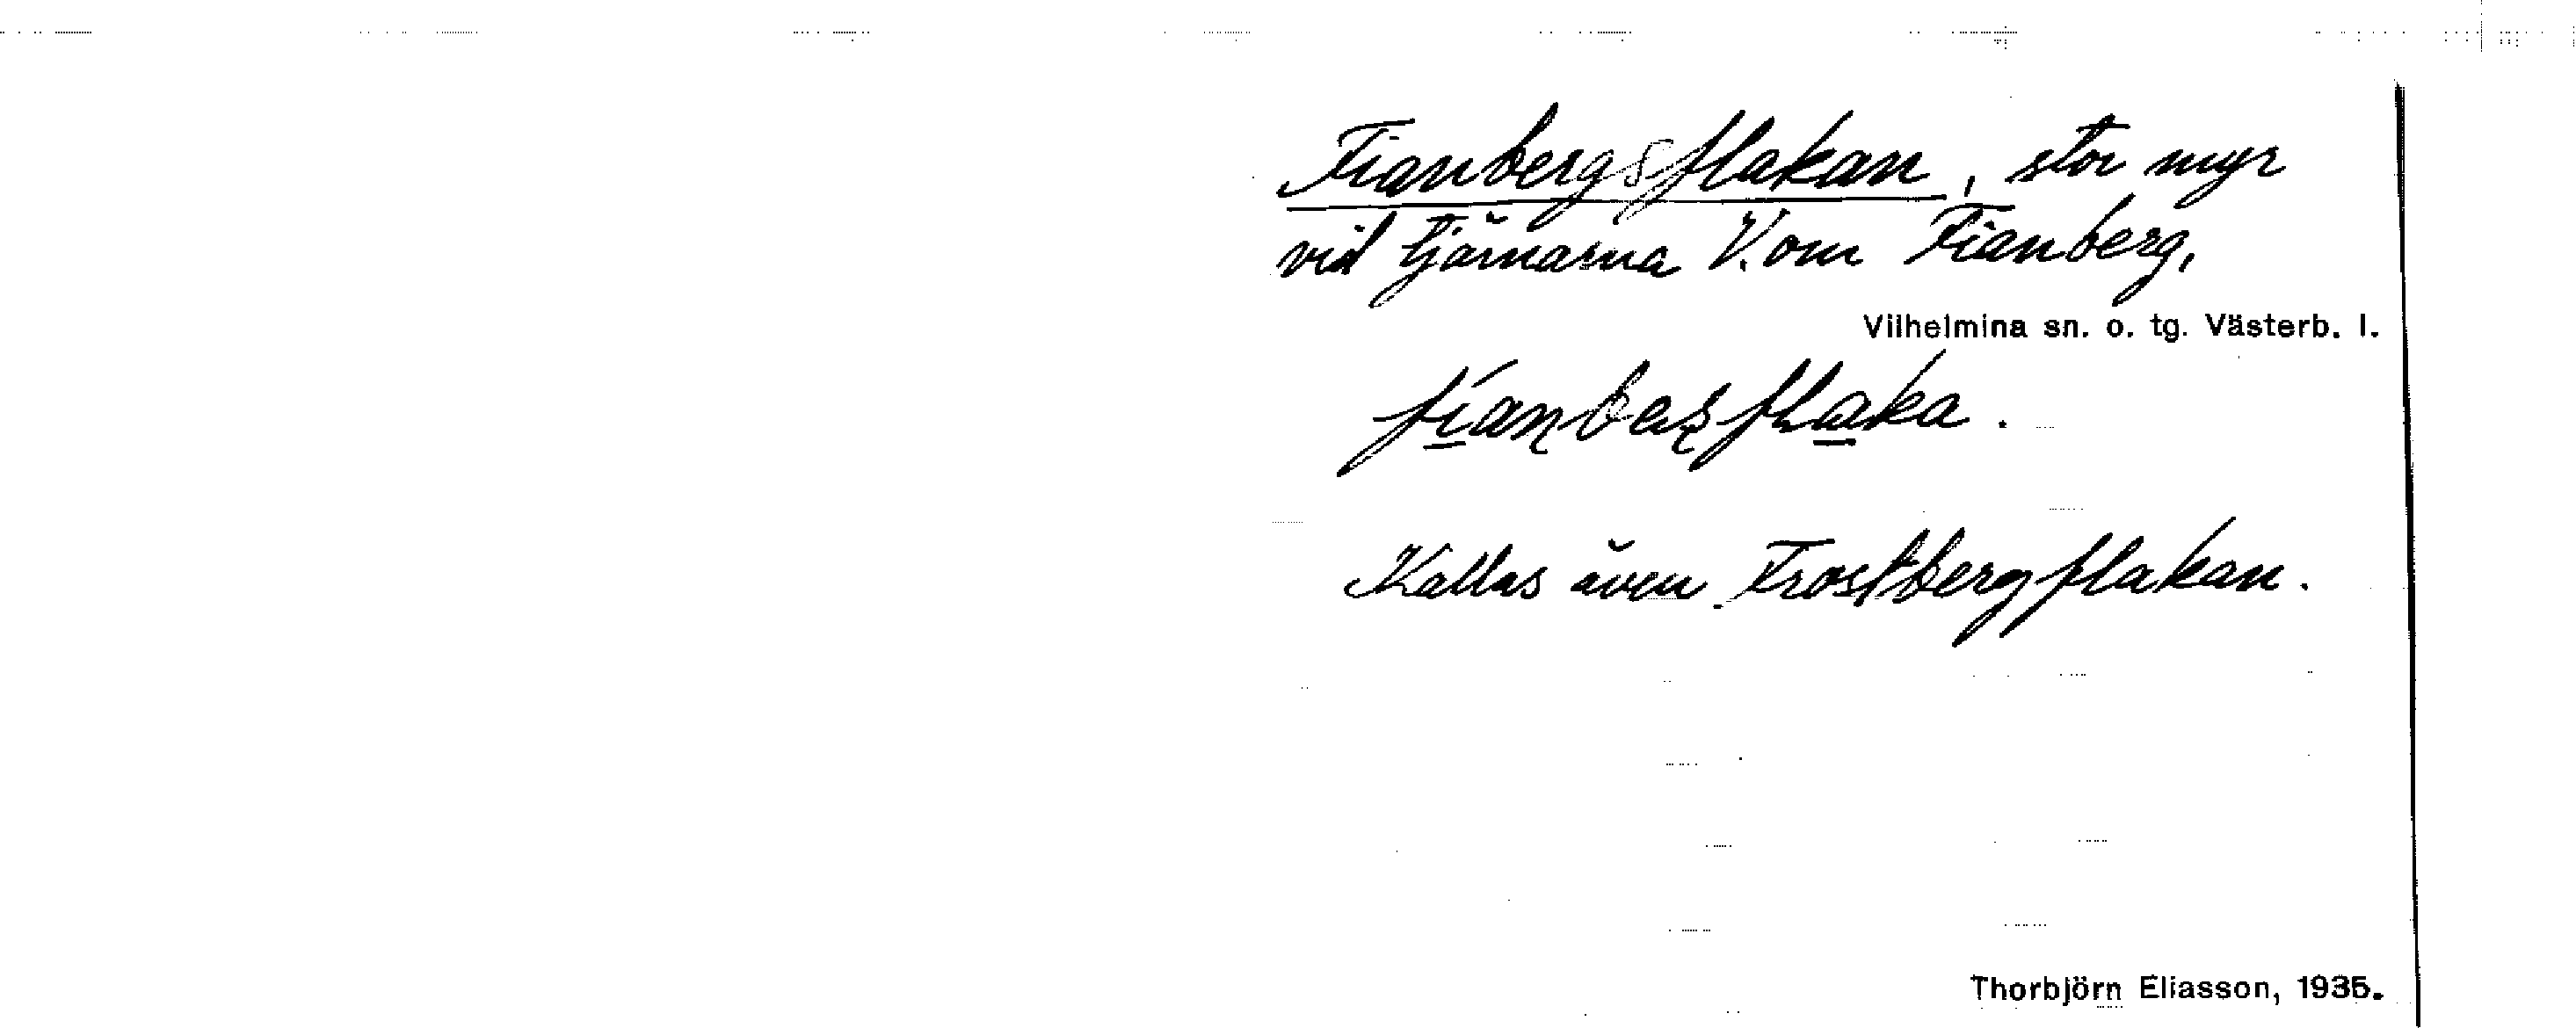 Fianbergsflakan, stor myr
vid tjärnarna V. om Fianberg,
Vilhelmina sn. o. tg. Västerb. l.
fianbærflaka.
Kallas även Frostbergflakan.
Thorbjörn Eliasson, 1935.